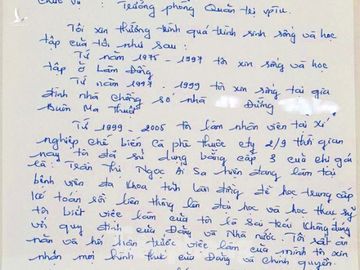 Chức vụ : Trưởng phòng Quản trị VPTU.
Tôi xin tường trình quá trình sinh sống và học
tập của tôi như sau :
Từ năm 1975 - 1997 tôi xin sống và học
tập ở Lâm Đồng
Từ năm 1997 - 1999 tôi xin sống tại gia
đình nhà chồng số nhà Đường
Buôn Ma Thuột
Từ 1999 - 2005 tôi làm nhân viên tại xí
nghiệp chế biến cà phê thuộc cty 2/9 thời gian
này tôi đã sử dụng bằng cấp 3 của chị gái
là : Trần Thị Ngọc Ái Sa hiện đang làm tại
bệnh viện đa khoa tỉnh Lâm đồng để học trung cấp
kế toán rồi liên thông lên đại học và học thạc sỹ
tôi biết việc làm của tôi là sai trái không đúng
với quy định của Đảng và Nhà nước. Tôi rất ăn
năn và hối hận trước việc làm của mình tôi xin
nhận mọi hình thức của Đảng và chính quyền